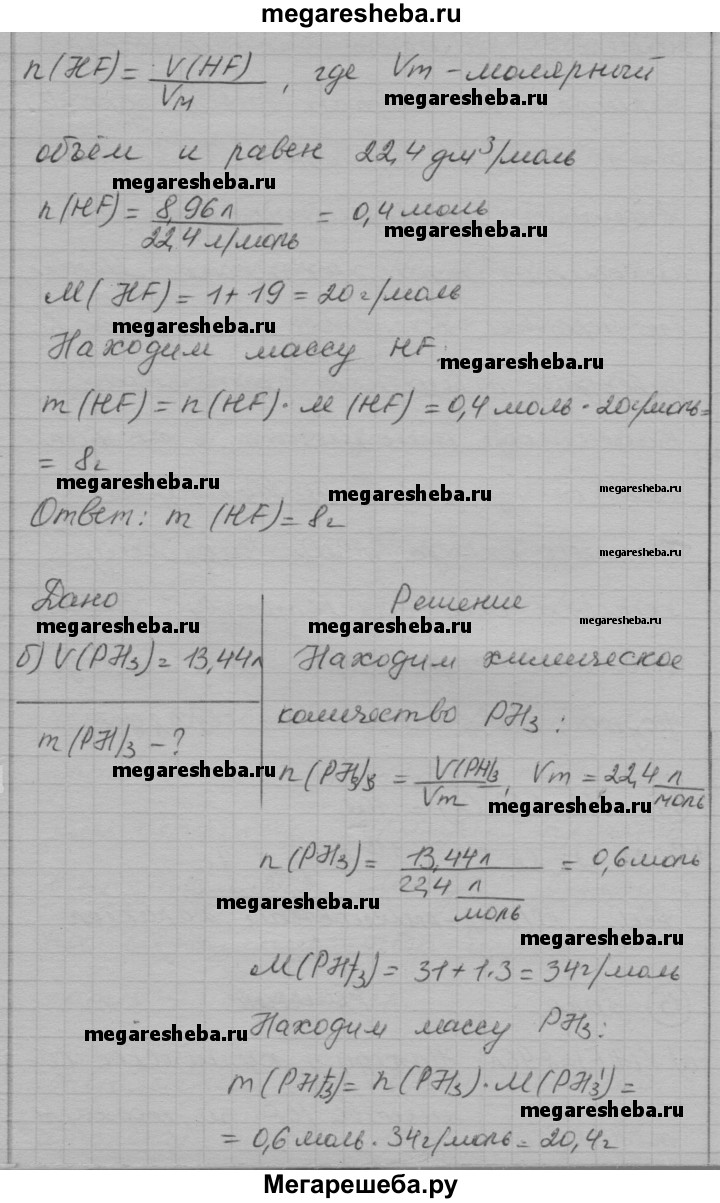 megaresheba.ru
n(HF) = V(HF)/Vм, где Vm - молярный
megaresheba.ru
объём и равен 22,4 дм³/моль
megaresheba.ru
n(HF) = 8,96 л/22,4 л/моль = 0,4 моль
megaresheba.ru
M(HF) = 1 + 19 = 20 г/моль
megaresheba.ru
Находим массу HF:
megaresheba.ru
m(HF) = n(HF) · M(HF) = 0,4 моль · 20 г/моль =
= 8 г
megaresheba.ru
megaresheba.ru
megaresheba.ru
Ответ: m(HF) = 8 г
megaresheba.ru
Дано
Решение
megaresheba.ru
megaresheba.ru
megaresheba.ru
б) V(PH₃) = 13,44 л
Находим химическое
количество PH₃:
m(PH)₃ - ?
megaresheba.ru
n(PH₃)₃ = V(PH)₃/Vm, Vm = 22,4 л/моль
megaresheba.ru
n(PH₃) = 13,44 л/22,4 л/моль = 0,6 моль
megaresheba.ru
megaresheba.ru
M(PH₃) = 31 + 1·3 = 34 г/моль
Находим массу PH₃:
megaresheba.ru
m(PH₃) = n(PH₃) · M(PH₃) =
megaresheba.ru
= 0,6 моль · 34 г/моль = 20,4 г
Мегарешеба.ру